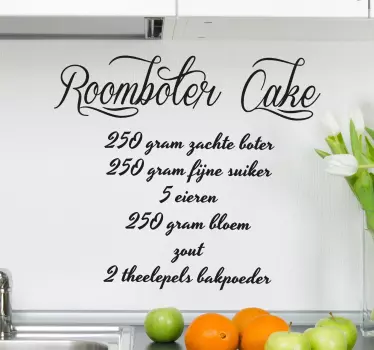 Roomboter Cake
250 gram zachte boter
250 gram fijne suiker
5 eieren
250 gram bloem
zout
2 theelepels bakpoeder